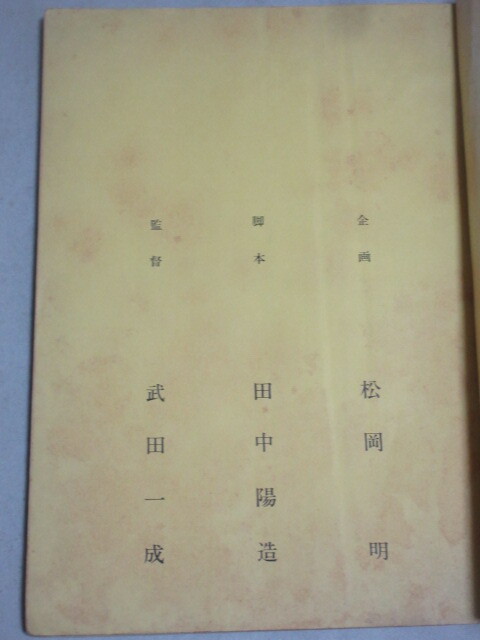 企画 松岡 明
脚本 田中陽造
監督 武田一成